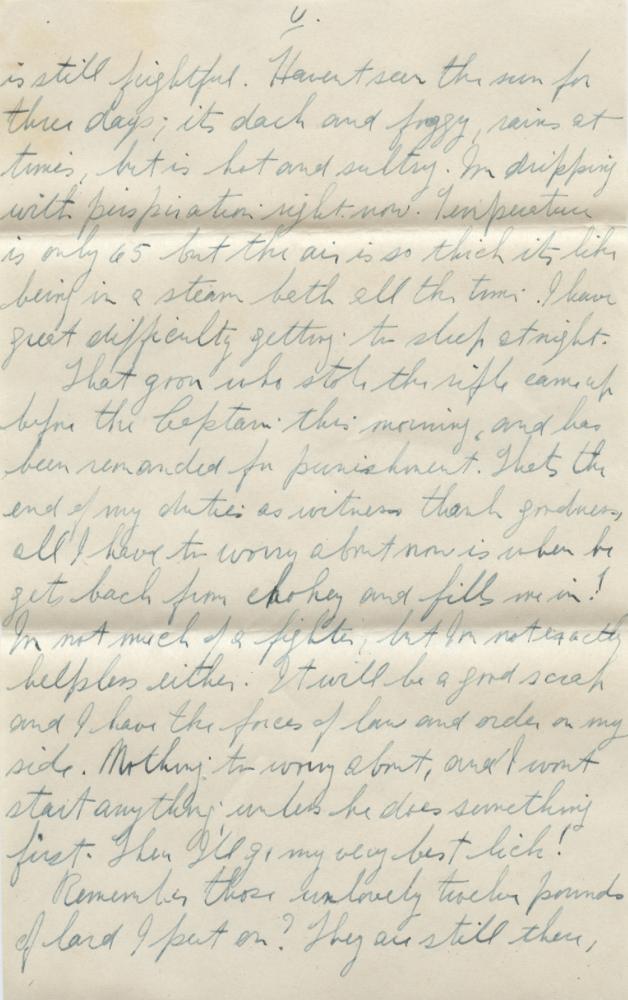 v.
is still frightful. Havent seen the sun for
three days; its dark and foggy, rains at
times, but is hot and sultry. Im dripping
with perspiration right now. Temperature
is only 65 but the air is so thick its like
being in a steam bath all the time. I have
great difficulty getting to sleep at night.
That goon who stole the rifle came up
before the Captain this morning, and has
been remanded for punishment. Thats the
end of my duties as witness thank goodness,
all I have to worry about now is when he
gets back from chokey and fills me in!
Im not much of a fighter, but Im not exactly
helpless either. It will be a good scrap
and I have the forces of law and order on my
side. Nothing to worry about, and I wont
start anything unless he does something
first. Then I'll go my very best lick!
Remember those unlovely twelve pounds
of lard I put on? They are still there,